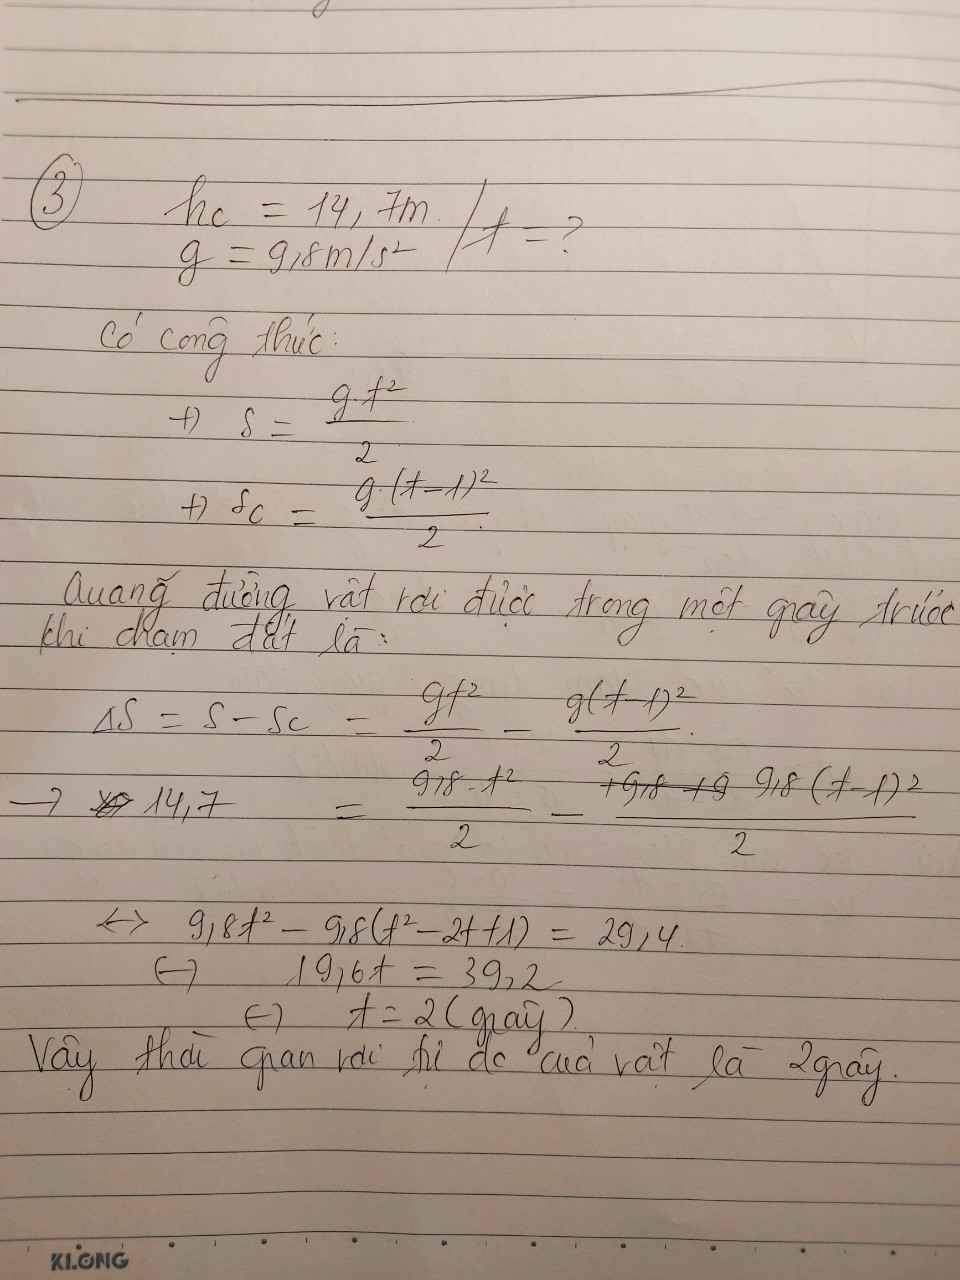 ③ hc = 14,7m / t = ?
g = 9,8m/s²
Có công thức:
+) S = g.t²/2
+) Sc = g.(t-1)²/2
Quang đường vật rơi được trong một giây trước
khi chạm đất là:
ΔS = S - Sc = gt²/2 - g(t-1)²/2.
→ 14,7 = 9,8.t²/2 - 9,8(t-1)²/2
<-> 9,8t² - 9,8(t²-2t+1) = 29,4.
<-> 19,6t = 39,2
<-> t = 2 (giây).
Vậy thời gian rơi tự do của vật là 2 giây.
KLONG